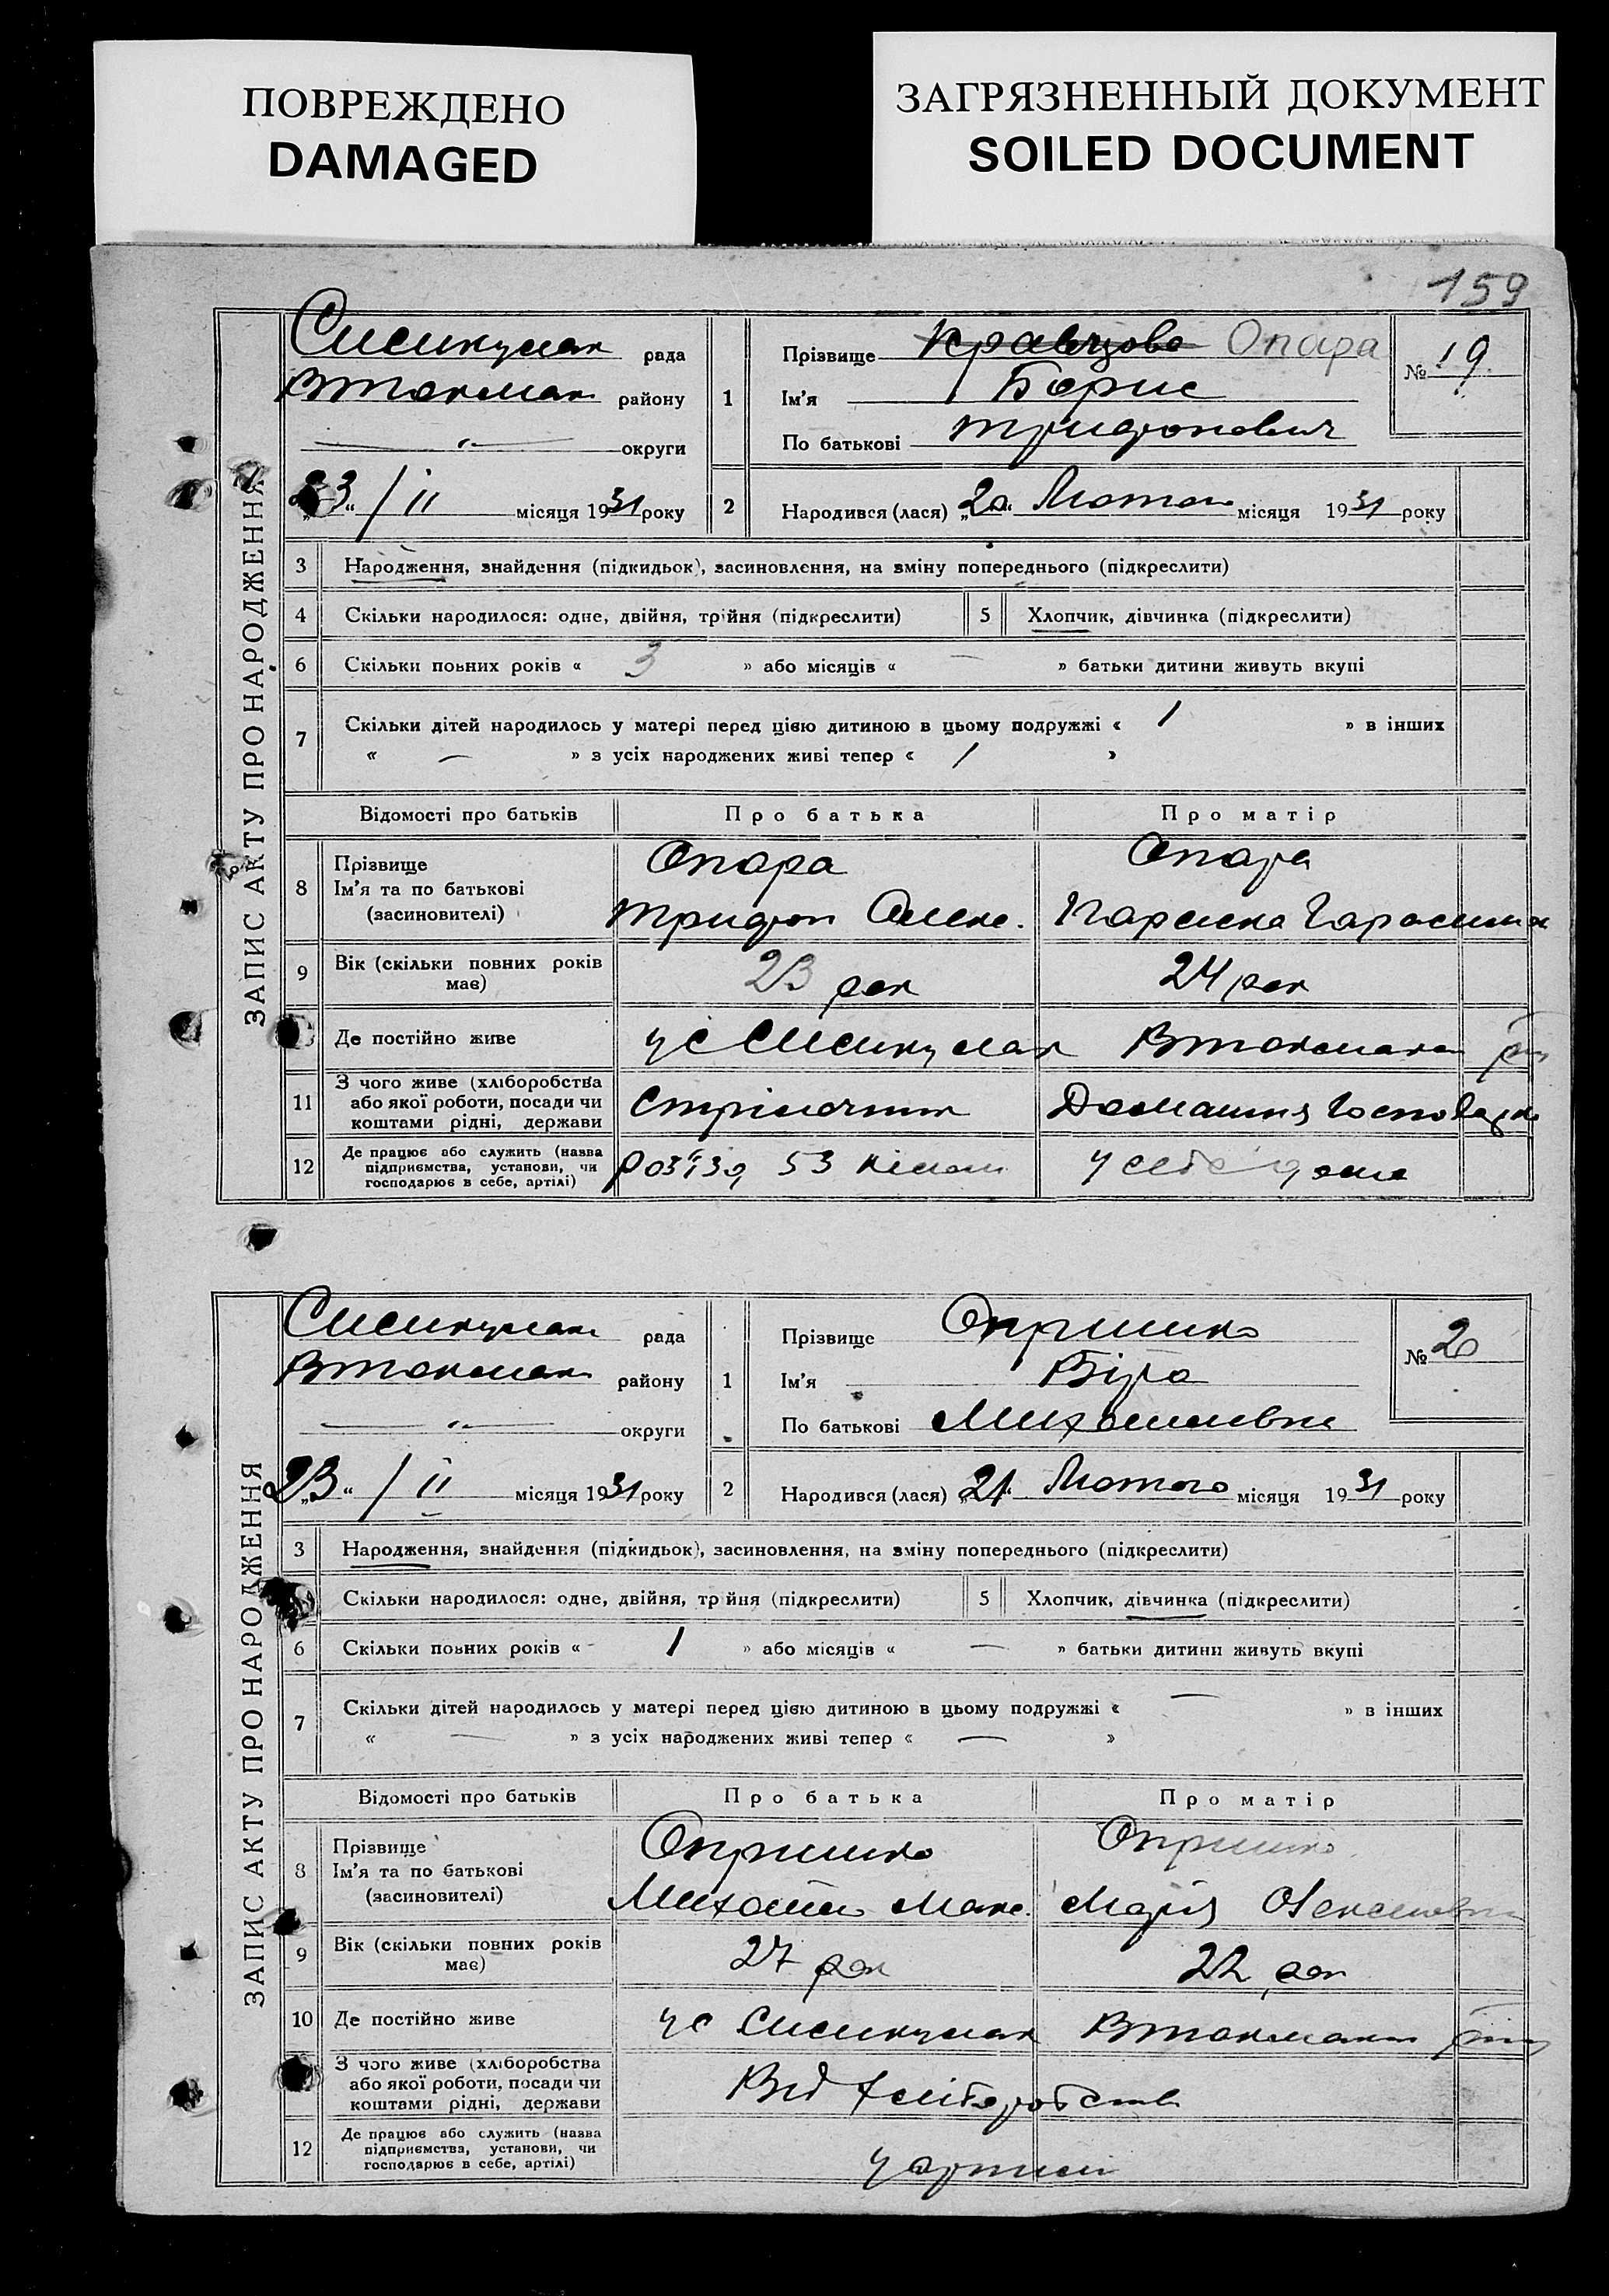 ПОВРЕЖДЕНО
DAMAGED
ЗАГРЯЗНЕННЫЙ ДОКУМЕНТ
SOILED DOCUMENT
159
ЗАПИС АКТУ ПРО НАРОДЖЕННЯ
рада
Втокмак району
— „ — округи
23 / II місяця 1931 року
1
Прізвище Кравцова Опара
Ім'я Борис
По батькові Трифонович
№ 19
2 Народився (лася) „20“ Лютого місяця 1931 року
3 Народження, знайдення (підкидьок), засиновлення, на зміну попереднього (підкреслити)
4 Скільки народилося: одне, двійня, трійня (підкреслити) 5 Хлопчик, дівчинка (підкреслити)
6 Скільки повних років « 3 » або місяців « — » батьки дитини живуть вкупі
7 Скільки дітей народилось у матері перед цією дитиною в цьому подружжі « 1 » в інших
« — » з усіх народжених живі тепер « 1 »
Відомості про батьків Про батька Про матір
8 Прізвище Опара Опара
Ім'я та по батькові
(засиновителі) Трифон Олекс.
9 Вік (скільки повних років має) 23 рок 24 рок
Де постійно живе у с Втокмак
11 З чого живе (хліборобства або якої роботи, посади чи коштами рідні, держави Домашня
12 Де працює або служить (назва підприємства, установи, чи господарює в себе, артілі) роз'їзд 53 у себе дома
ЗАПИС АКТУ ПРО НАРОДЖЕННЯ
рада
Втокмак району
— „ — округи
„23“ / II місяця 1931 року
1
Прізвище Опришко
Ім'я Віра
По батькові Михайлівна
№ 20
2 Народився (лася) „21“ Лютого місяця 1931 року
3 Народження, знайдення (підкидьок), засиновлення, на зміну попереднього (підкреслити)
Скільки народилося: одне, двійня, трійня (підкреслити) 5 Хлопчик, дівчинка (підкреслити)
6 Скільки повних років « 1 » або місяців « — » батьки дитини живуть вкупі
7 Скільки дітей народилось у матері перед цією дитиною в цьому подружжі « — » в інших
« — » з усіх народжених живі тепер « — »
Відомості про батьків Про батька Про матір
8 Прізвище Опришко Опришко
Ім'я та по батькові
(засиновителі) Михайло Макс. Марія
9 Вік (скільки повних років має) 27 рок 22 рок
10 Де постійно живе у с Втокмак
З чого живе (хліборобства або якої роботи, посади чи коштами рідні, держави Від хліборобства
12 Де працює або служить (назва підприємства, установи, чи господарює в себе, артілі) у артілі